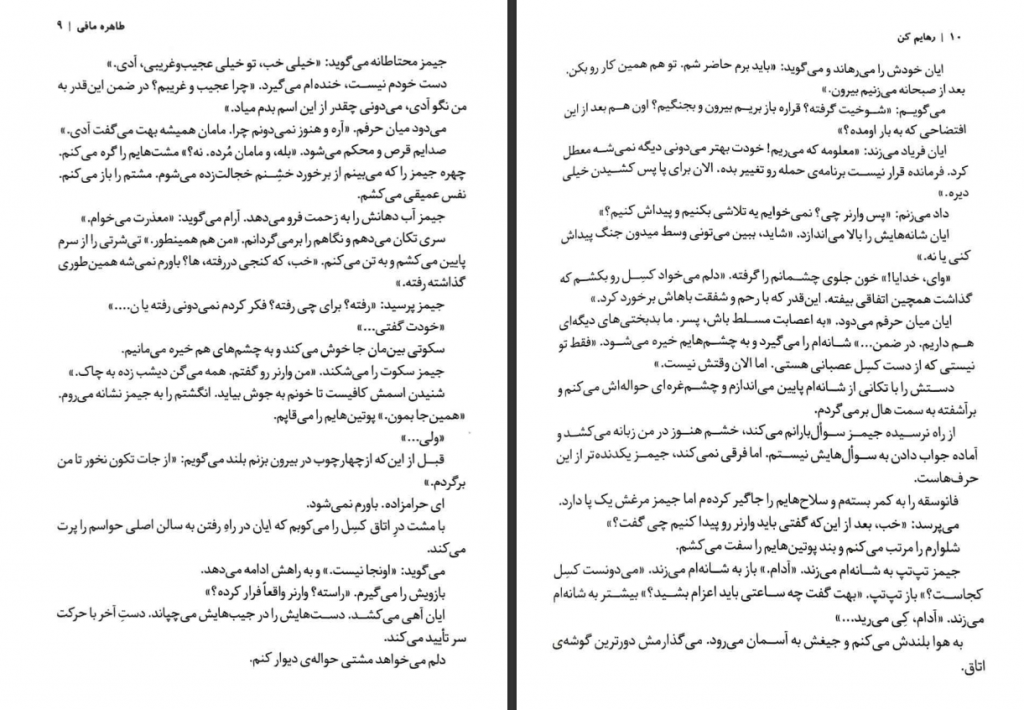 طاهره مافی | ۹
جیمز محتاطانه می‌گوید: «خیلی خب، تو خیلی عجیب‌وغریبی، آدی.»
دست خودم نیست، خنده‌ام می‌گیرد. «چرا عجیب و غریبم؟ در ضمن این‌قدر به
من نگو آدی، می‌دونی چقدر از این اسم بدم میاد.»
می‌دود میان حرفم. «آره و هنوز نمی‌دونم چرا. مامان همیشه بهت می‌گفت آدی.»
صدایم قرص و محکم می‌شود. «بله، و مامان مُرده. نه؟» مشت‌هایم را گره می‌کنم.
چهره جیمز را که می‌بینم از برخورد خشنم خجالت‌زده می‌شوم. مشتم را باز می‌کنم.
نفس عمیقی می‌کشم.
جیمز آب دهانش را به زحمت فرو می‌دهد. آرام می‌گوید: «معذرت می‌خوام.»
سری تکان می‌دهم و نگاهم را برمی‌گردانم. «من هم همینطور.» تی‌شرتی را از سرم
پایین می‌کشم و به تن می‌کنم. «خب، که کنجی دررفته، ها؟ باورم نمی‌شه همین‌طوری
گذاشته رفته.»
جیمز پرسید: «رفته؟ برای چی رفته؟ فکر کردم نمی‌دونی رفته یا ن....»
«خودت گفتی...»
سکوتی بین‌مان جا خوش می‌کند و به چشم‌های هم خیره می‌مانیم.
جیمز سکوت را می‌شکند. «من وارنر رو گفتم. همه می‌گن دیشب زده به چاک.»
شنیدن اسمش کافیست تا خونم به جوش بیاید. انگشتم را به جیمز نشانه می‌روم.
«همین‌جا بمون.» پوتین‌هایم را می‌قاپم.
«ولی...»
قبل از این‌که ازچهارچوب در بیرون بزنم بلند می‌گویم: «از جات تکون نخور تا من
برگردم.»
ای حرامزاده. باورم نمی‌شود.
با مشت درِ اتاق کسِل را می‌کوبم که ایان در راهِ رفتن به سالن اصلی حواسم را پرت
می‌کند.
می‌گوید: «اونجا نیست.» و به راهش ادامه می‌دهد.
بازویش را می‌گیرم. «راسته؟ وارنر واقعاً فرار کرده؟»
ایان آهی می‌کشد. دست‌هایش را در جیب‌هایش می‌چپاند. دستِ آخر با حرکت
سر تأیید می‌کند.
دلم می‌خواهد مشتی حواله‌ی دیوار کنم.
۱۰ | رهایم کن
ایان خودش را می‌رهاند و می‌گوید: «باید برم حاضر شم. تو هم همین کار رو بکن.
بعد از صبحانه می‌زنیم بیرون.»
می‌گویم: «شوخیت گرفته؟ قراره باز بریم بیرون و بجنگیم؟ اون هم بعد از این
افتضاحی که به بار اومده؟»
ایان فریاد می‌زند: «معلومه که می‌ریم! خودت بهتر می‌دونی دیگه نمی‌شه معطل
کرد. فرمانده قرار نیست برنامه‌ی حمله رو تغییر بده. الان برای پا پس کشیدن خیلی
دیره.»
داد می‌زنم: «پس وارنر چی؟ نمی‌خوایم یه تلاشی بکنیم و پیداش کنیم؟»
ایان شانه‌هایش را بالا می‌اندازد. «شاید، ببین می‌تونی وسط میدون جنگ پیداش
کنی یا نه.»
«وای، خدایا!» خون جلوی چشمانم را گرفته. «دلم می‌خواد کسِل رو بکشم که
گذاشت همچین اتفاقی بیفته. این‌قدر که با رحم و شفقت باهاش برخورد کرد.»
ایان میان حرفم می‌دود. «به اعصابت مسلط باش، پسر. ما بدبختی‌های دیگه‌ای
هم داریم. در ضمن...» شانه‌ام را می‌گیرد و به چشم‌هایم خیره می‌شود. «فقط تو
نیستی که از دست کسِل عصبانی هستی. اما الان وقتش نیست.»
دستش را با تکانی از شانه‌ام پایین می‌اندازم و چشم‌غره‌ای حواله‌اش می‌کنم و
برآشفته به سمت هال برمی‌گردم.
از راه نرسیده جیمز سوأل‌بارانم می‌کند، خشم هنوز در من زبانه می‌کشد و
آماده جواب دادن به سوأل‌هایش نیستم. اما فرقی نمی‌کند، جیمز یکدنده‌تر از این
حرف‌هاست.
فانوسقه را به کمر بسته‌م و سلاح‌هایم را جاگیر کرده‌م اما جیمز مرغش یک پا دارد.
می‌پرسد: «خب، بعد از این‌که گفتی باید وارنر رو پیدا کنیم چی گفت؟»
شلوارم را مرتب می‌کنم و بند پوتین‌هایم را سفت می‌کشم.
جیمز تپ‌تپ به شانه‌ام می‌زند. «آدام.» باز به شانه‌ام می‌زند. «می‌دونست کسِل
کجاست؟» باز تپ‌تپ. «بهت گفت چه ساعتی باید اعزام بشید؟» بیشتر به شانه‌ام
می‌زند. «آدام، کِی می‌رید...»
به هوا بلندش می‌کنم و جیغش به آسمان می‌رود. می‌گذارمش دورترین گوشه‌ی
اتاق.